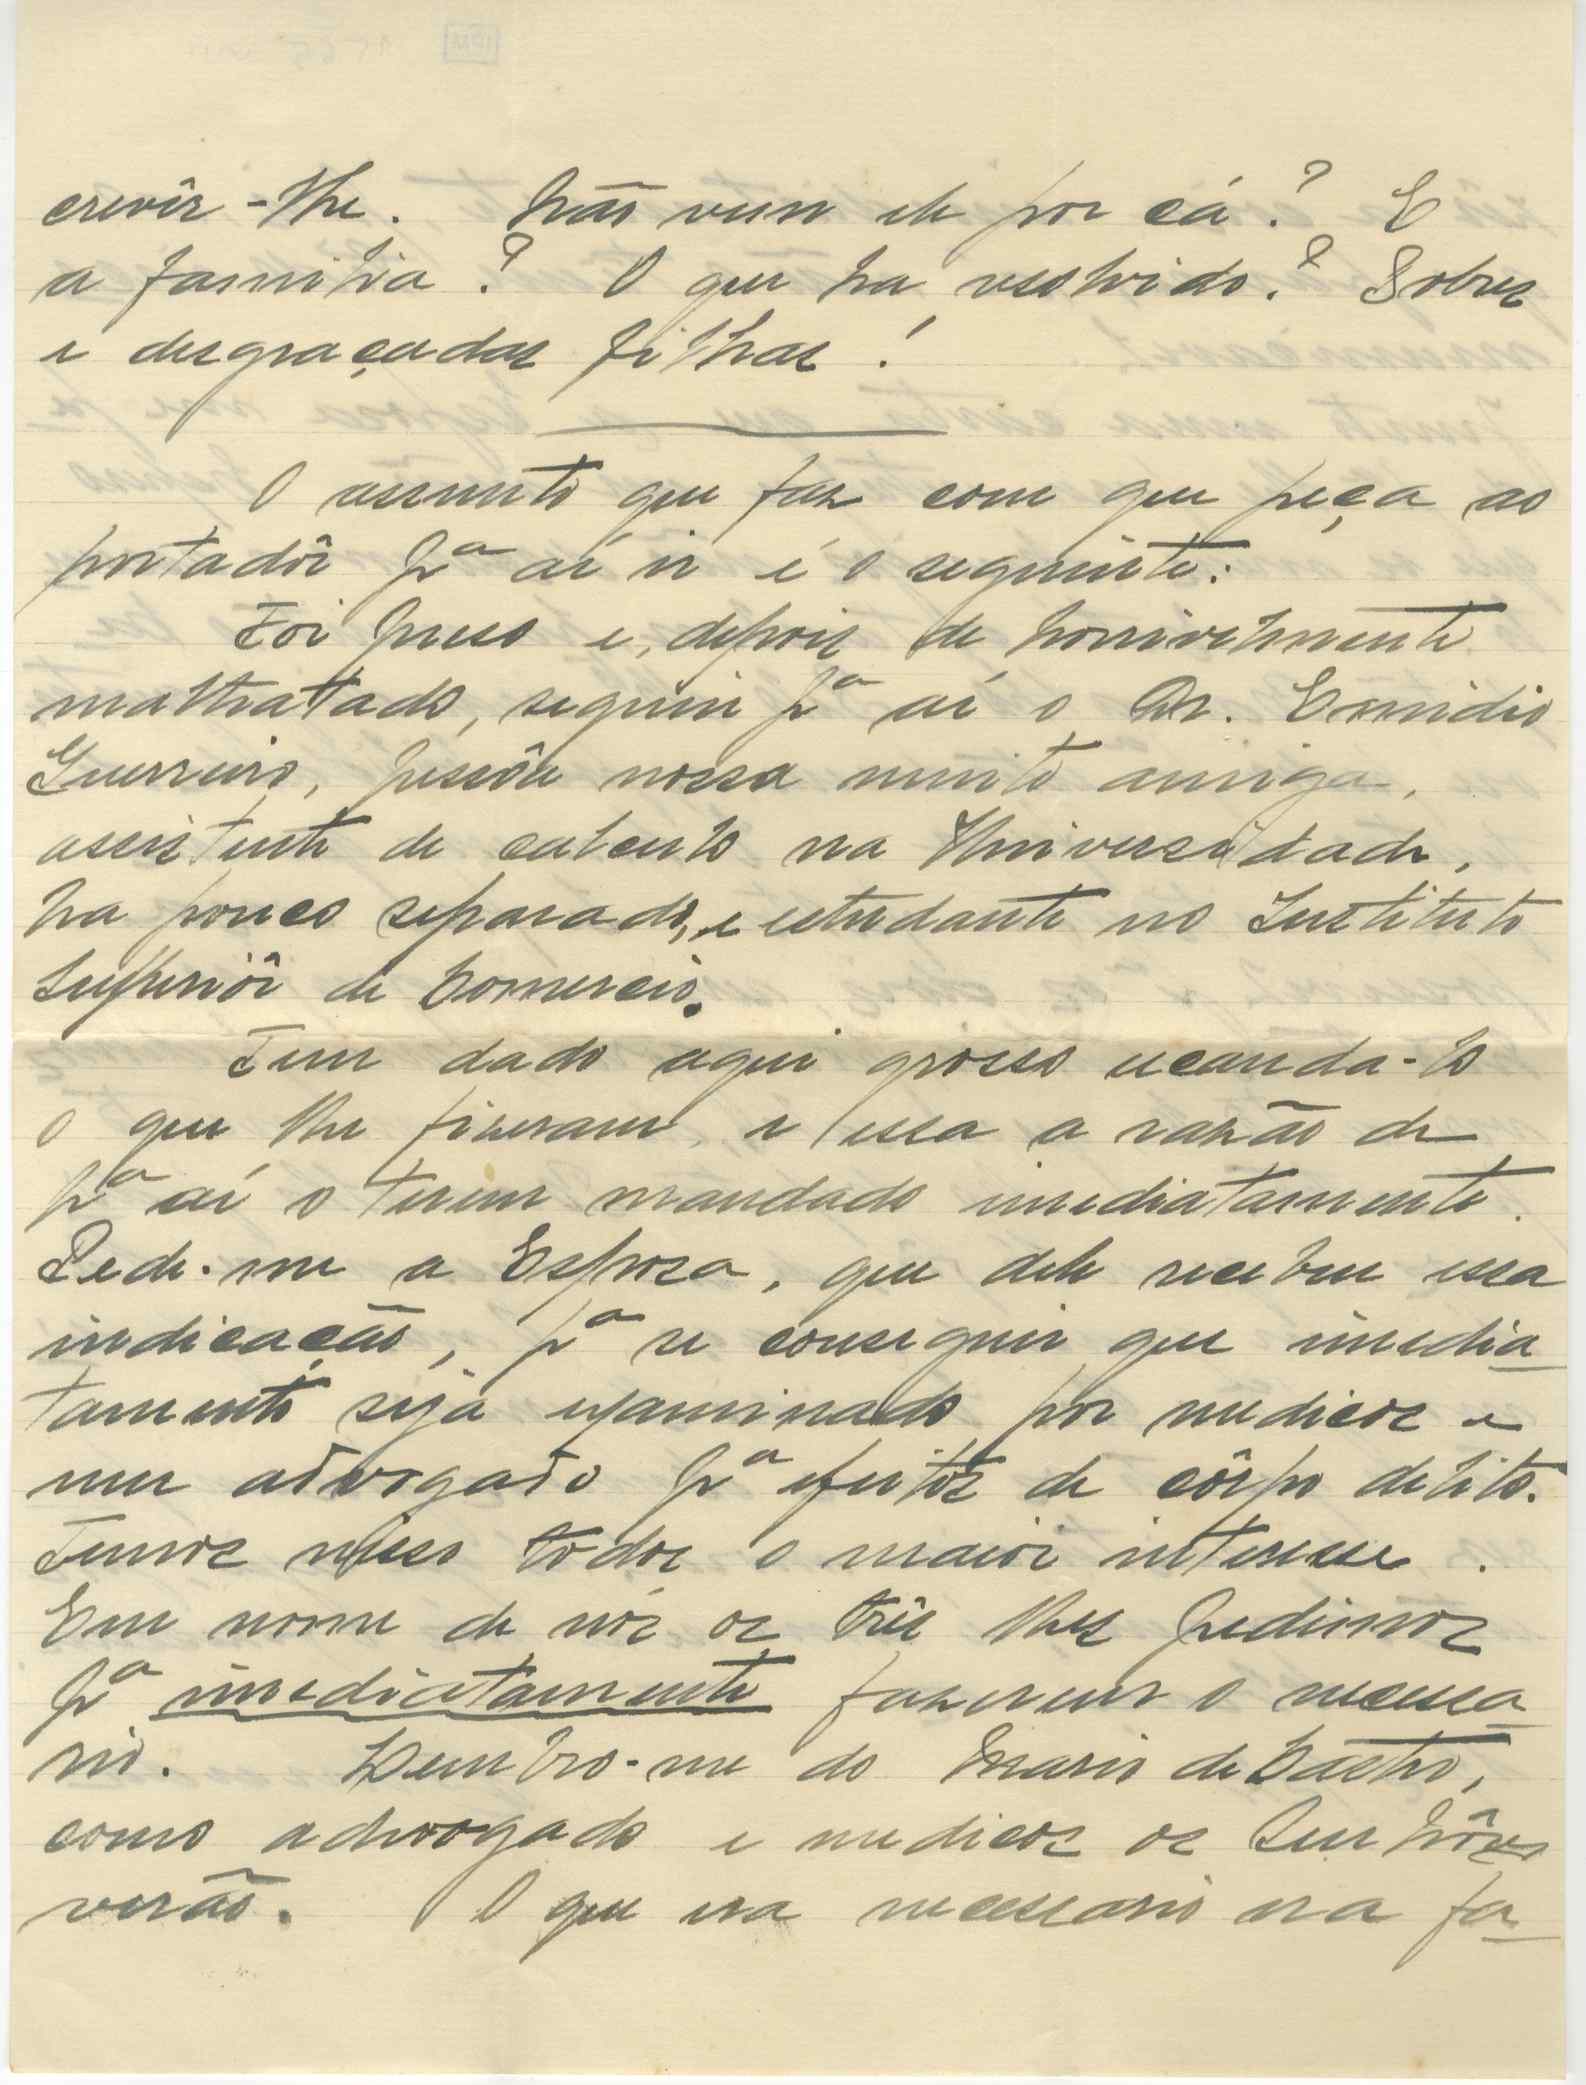 crevêr-lhe. Não vem ele por cá? E
a familia? O que ha resolvido? Pobres
e desgraçadas filhas!
O assunto que faz com que peça ao
portadôr pª aí ir é o seguinte:
Foi preso e, depois de horrivelmente
maltratado, seguiu pª aí o Dr. Emidio
Guerreiro, pessôa nossa muito amiga,
assistente de calculo na Universidade,
ha pouco separado, e estudante no Instituto
Superiôr de Comercio.
Tem dado aqui grosso escanda-lo
o que lhe fizeram, e essa a razão de
pª aí o terem mandado imediatamente.
Pede-me a Esposa, que dele recebeu essa
indicação, pª se conseguir que imedia
tamente seja examinado por medicos e
um advogado pª efeitos de côrpo delito.
Temos nisso todos o maior interesse.
Em nome de nós os três lhes pedimos
pª imediatamente fazerem o necessa
rio. Lembro-me do Mario de Castro,
como advogado e medicos os Senhôres
verão. O que era necessario era fa-